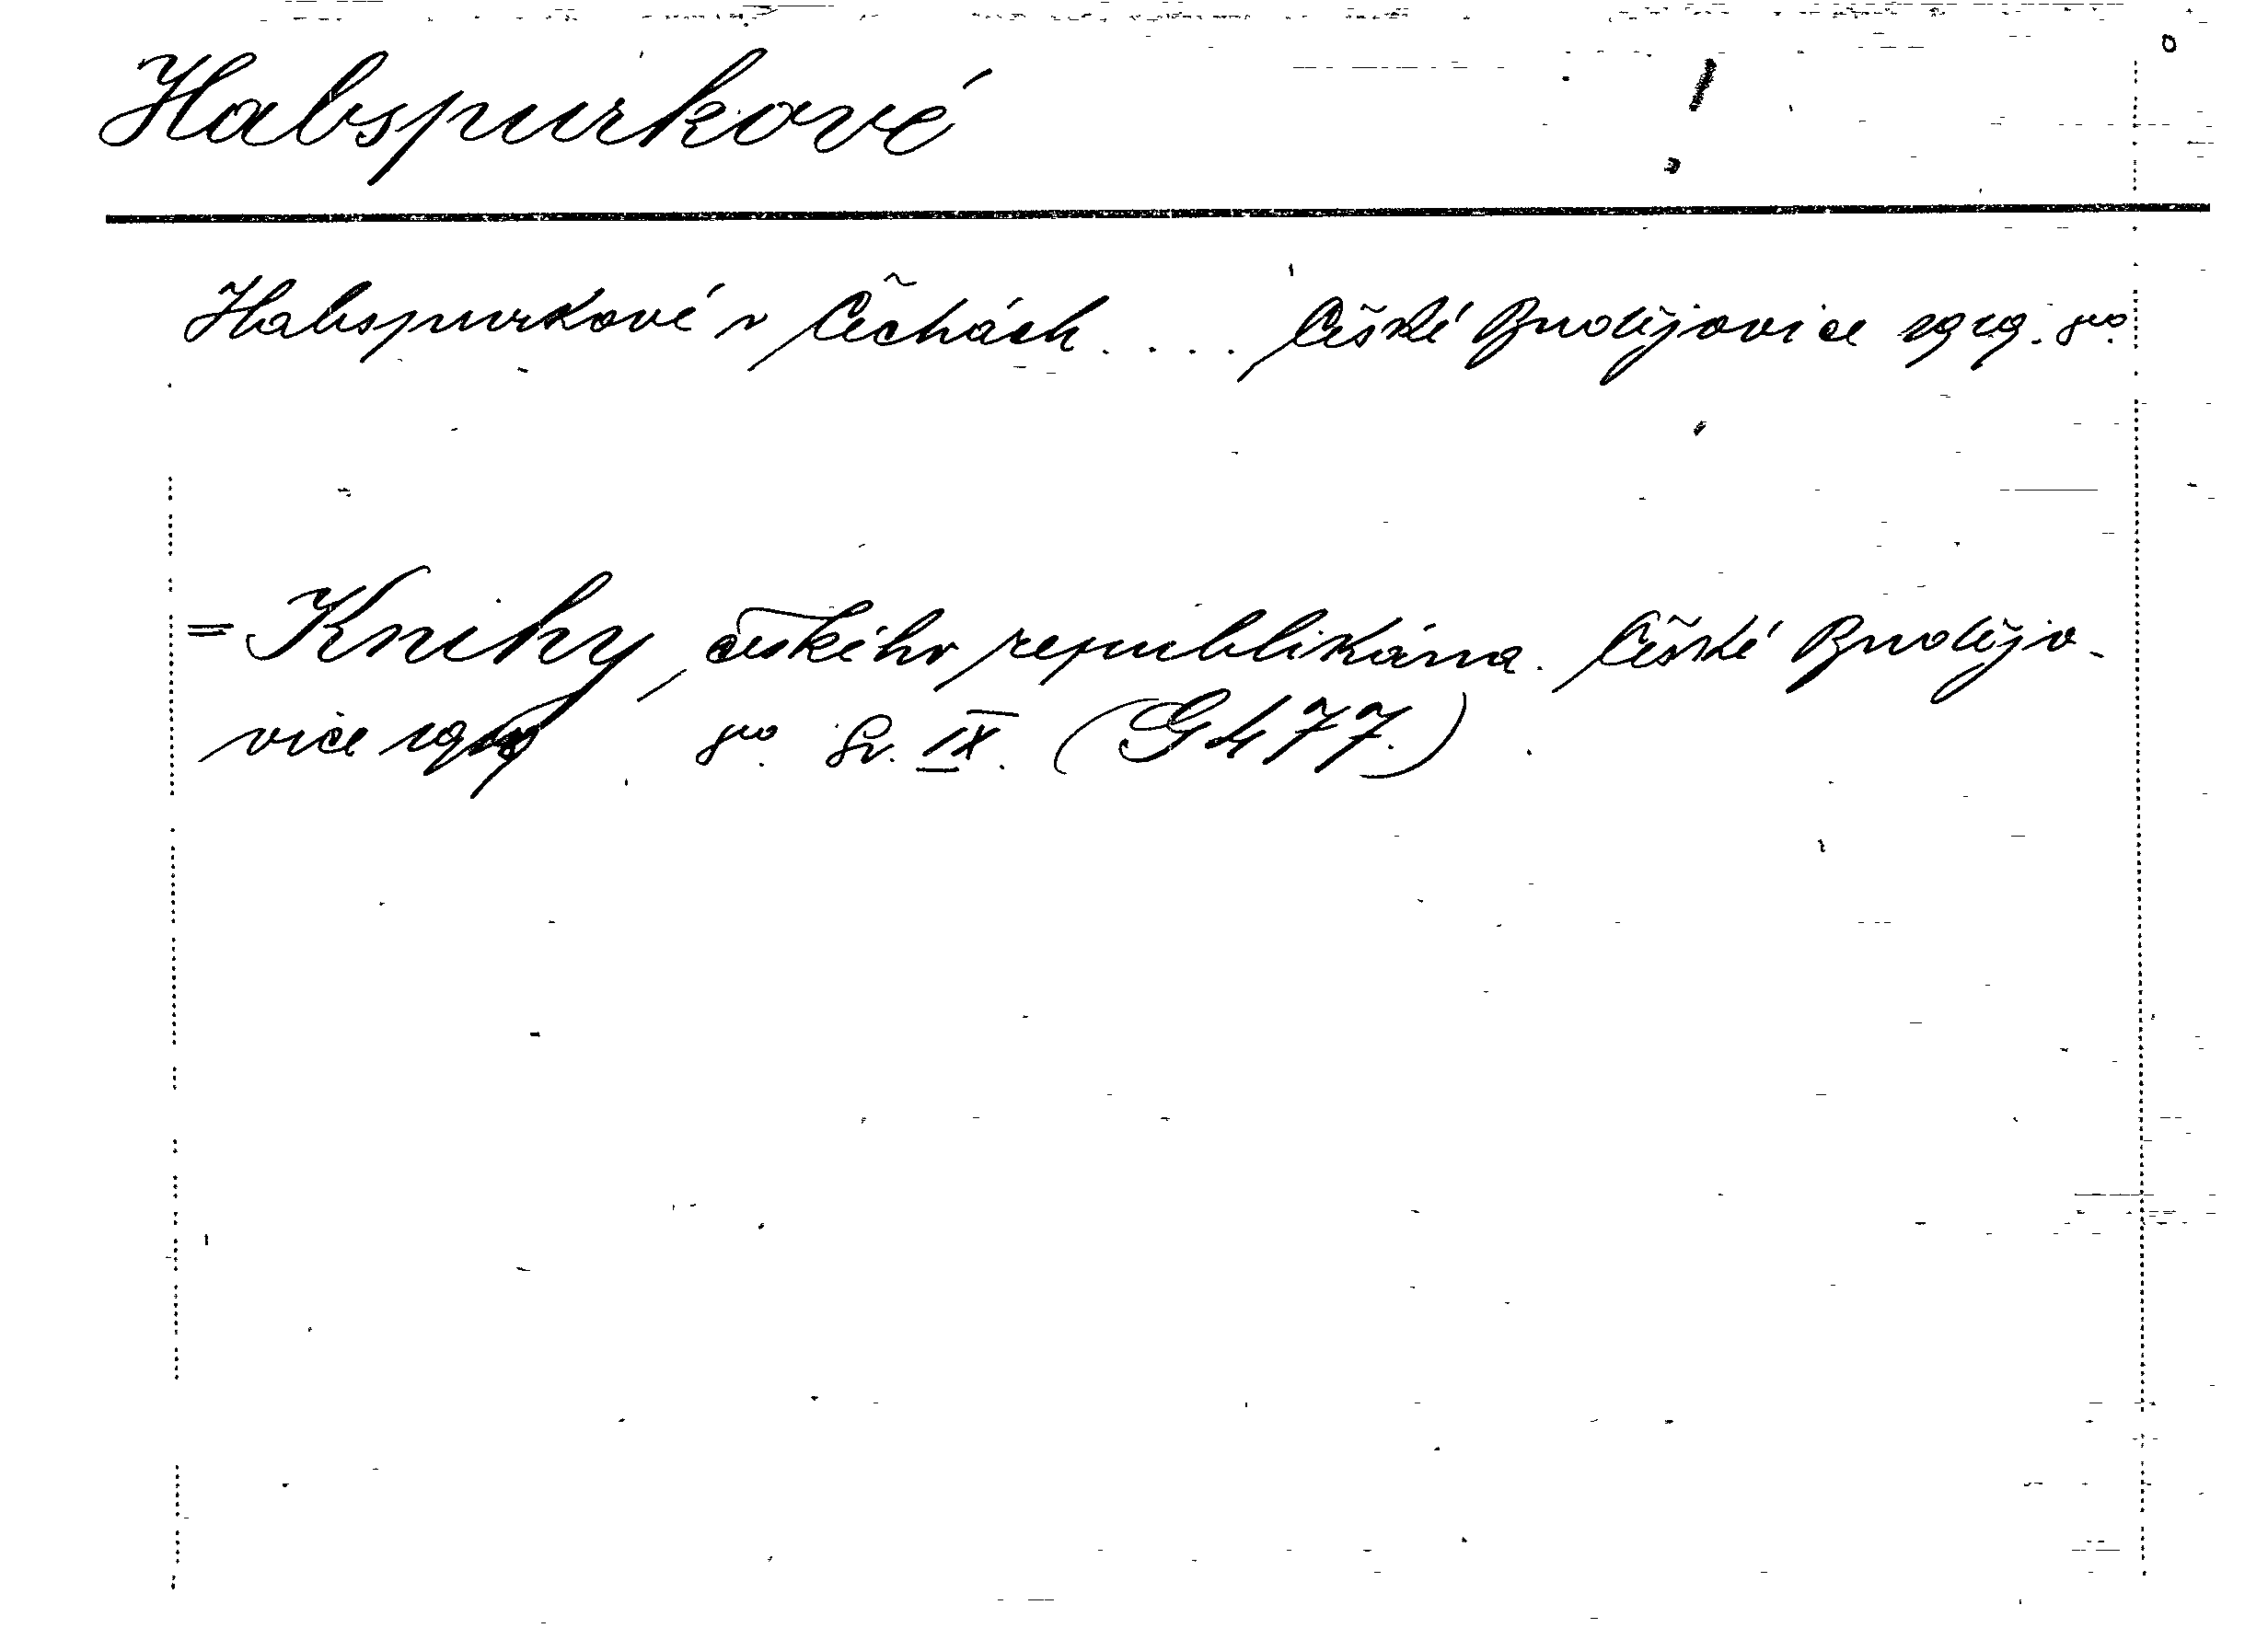 Habspurkové !
Habspurkové v Čechách .... České Budějovice 1919. 8vo.
= Knihy českého republikána. České Budějo-
vice 1919 8vo. Sv. IX. (G 477.)